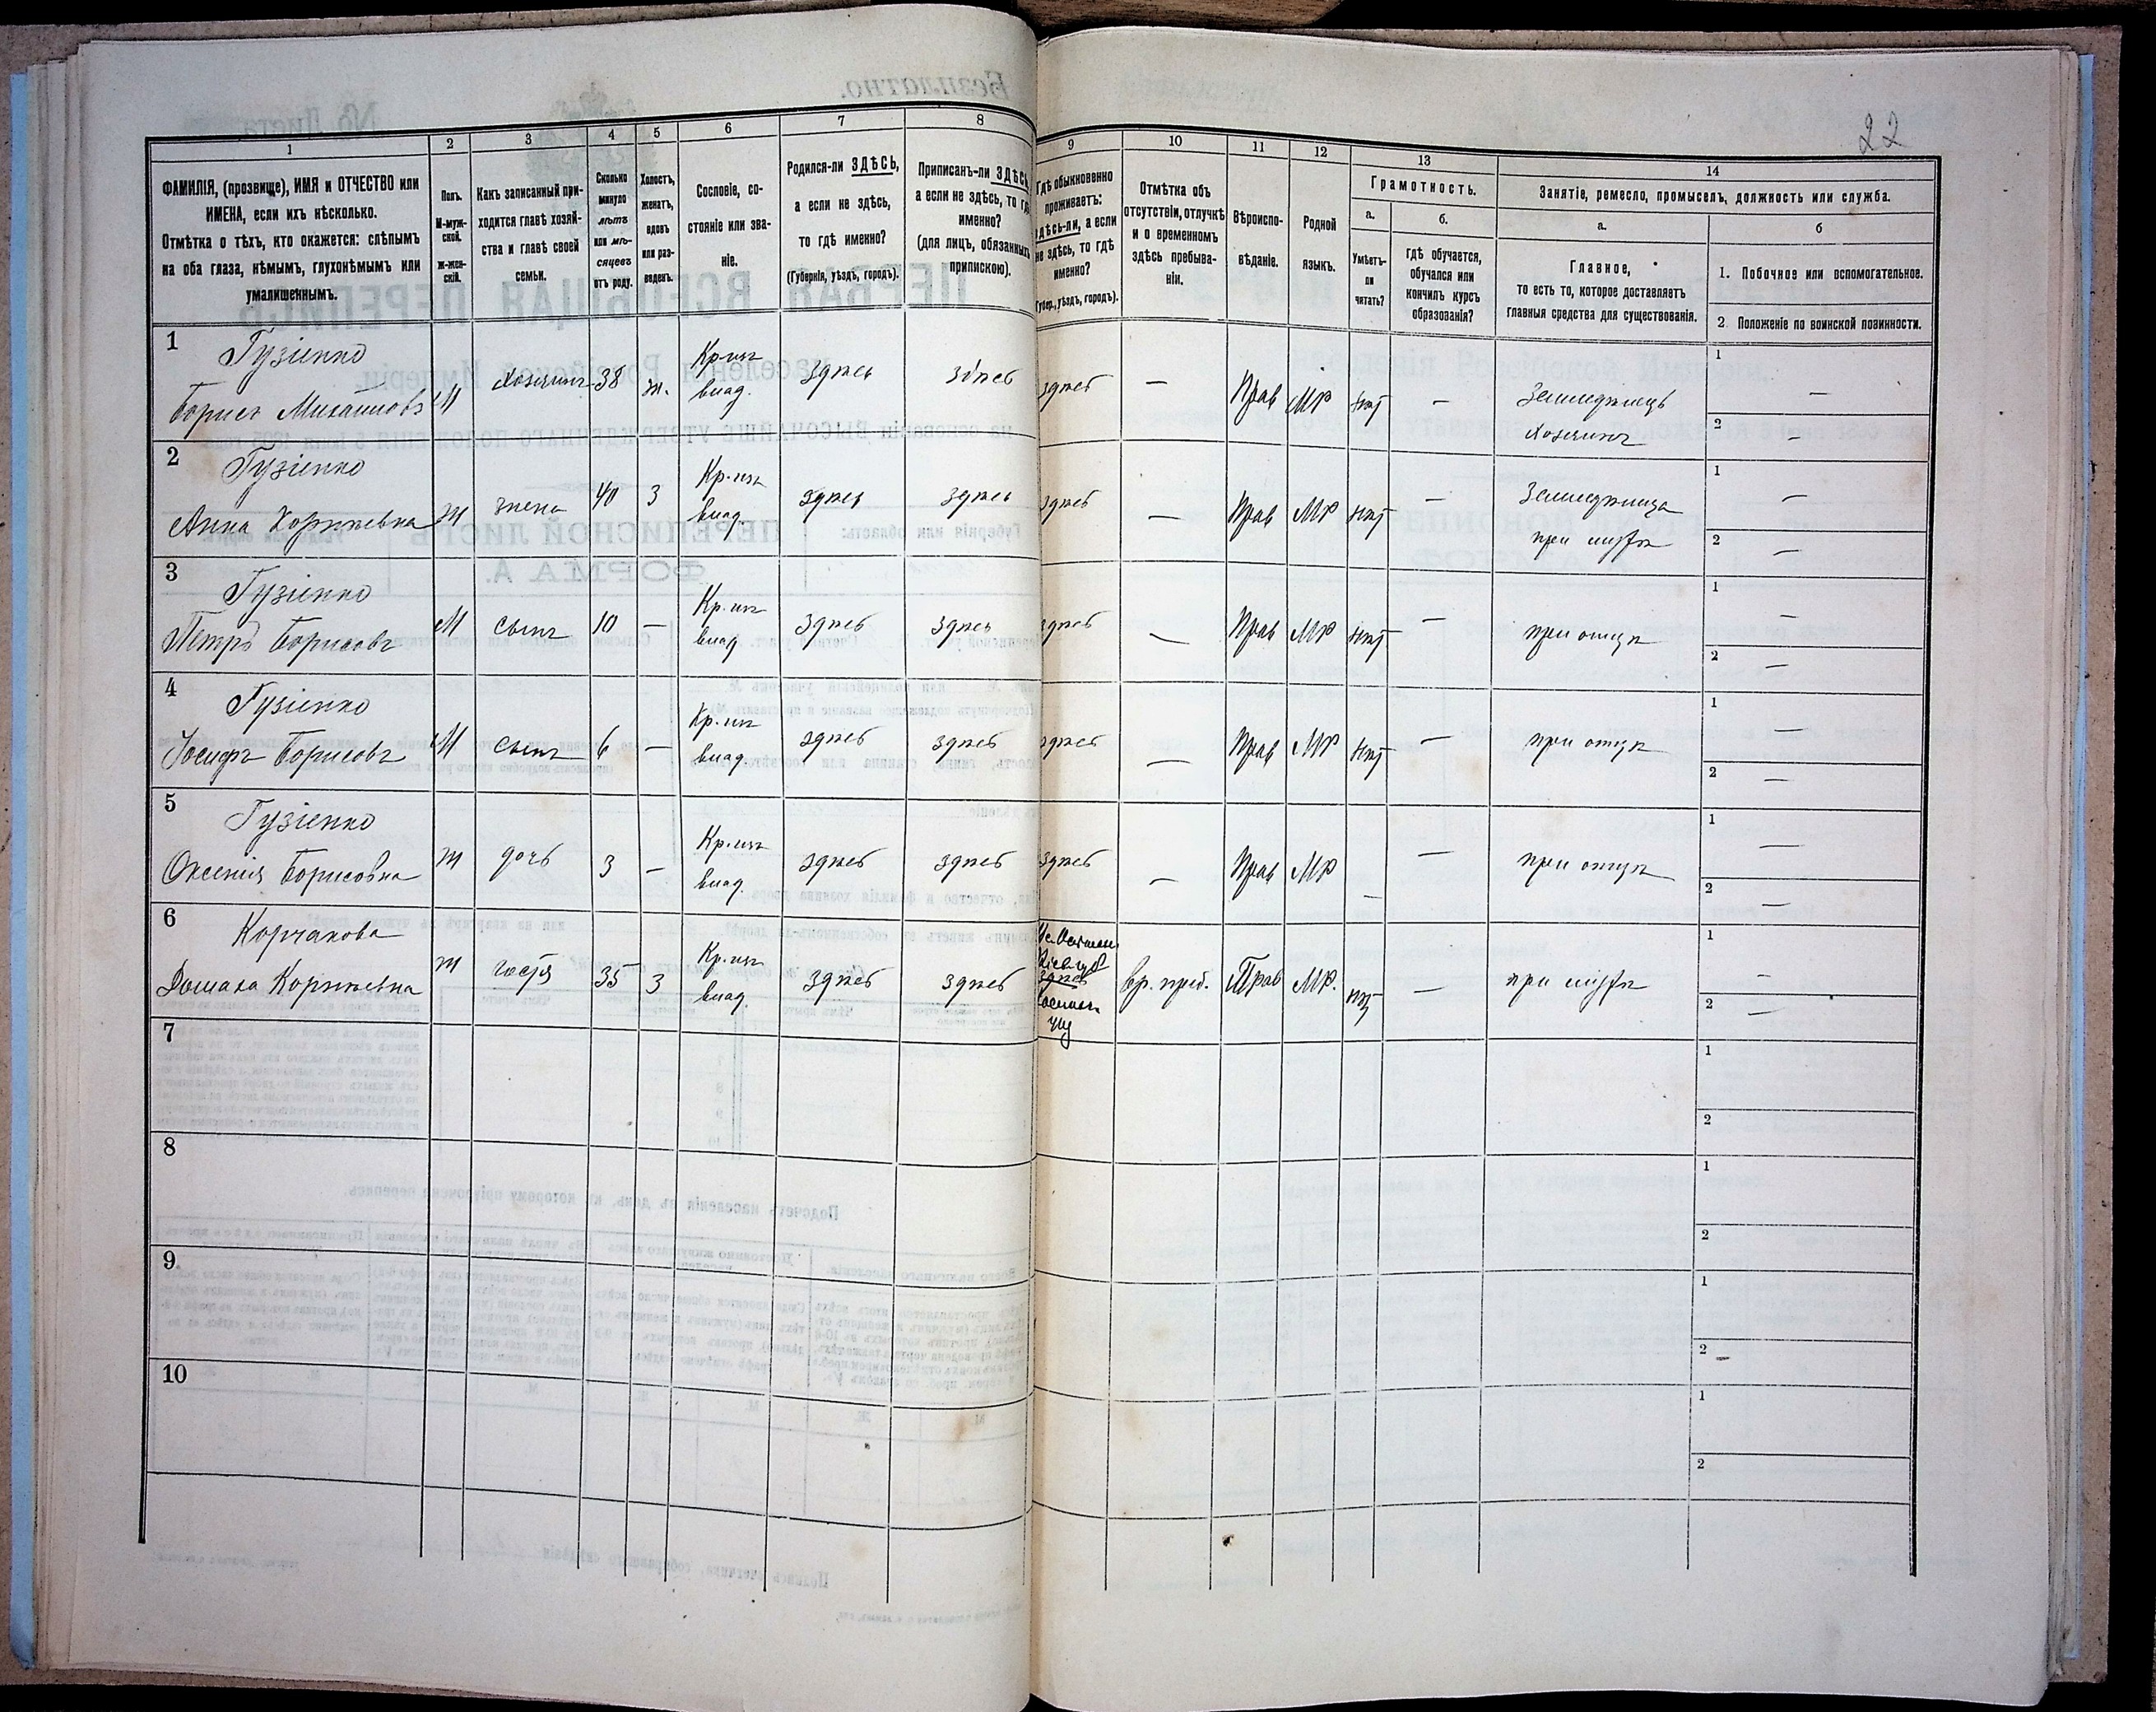 22
1 2 3 4 5 6 7 8
ФАМИЛІЯ, (прозвище), ИМЯ и ОТЧЕСТВО или
ИМЕНА, если ихъ нѣсколько.
Отмѣтка о тѣхъ, кто окажется: слѣпымъ
на оба глаза, нѣмымъ, глухонѣмымъ или
умалишеннымъ.
Полъ.
М-муж-
ской.
ж-жен-
скій.
Какъ записанный при-
ходится главѣ хозяй-
ства и главѣ своей
семьи.
Сколько
минуло
лѣтъ
или мѣ-
сяцевъ
отъ роду.
Холостъ,
женатъ,
вдовъ
или раз-
веденъ.
Сословіе, со-
стояніе или зва-
ніе.
Родился-ли ЗДѢСЬ,
а если не здѣсь,
то гдѣ именно?
(Губернія, уѣздъ, городъ).
Приписанъ-ли ЗДѢСЬ,
а если не здѣсь, то гдѣ
именно?
(для лицъ, обязанныхъ
припискою).
9 10 11 12 13 14
Гдѣ обыкновенно
проживаетъ:
здѣсь-ли, а если
не здѣсь, то гдѣ
именно?
(Губер., уѣздъ, городъ).
Отмѣтка объ
отсутствіи, отлучкѣ
и о временномъ
здѣсь пребыва-
ніи.
Вѣроиспо-
вѣданіе.
Родной
языкъ.
Грамотность.
а. б.
Умѣетъ-
ли
читать?
Гдѣ обучается,
обучался или
кончилъ курсъ
образованія?
Занятіе, ремесло, промыселъ, должность или служба.
а. б
Главное,
то есть то, которое доставляетъ
главныя средства для существованія.
1. Побочное или вспомогательное.
2. Положеніе по воинской повинности.
1 Гузіенко
Борисъ Михайловъ М Хозяинъ 38 ж. Кр-нъ
влад. здѣсь здѣсь здѣсь — Прав МР нѣт — Земледѣлецъ
Хозяинъ 1 — 2 —
2 Гузіенко
Анна Корнѣевна ж жена 40 з Кр-нъ
влад. здѣсь здѣсь здѣсь — Прав МР нѣт — Земледѣлица
при мужѣ 1 — 2 —
3 Гузіенко
Петръ Борисовъ М сынъ 10 — Кр-нъ
влад здѣсь здѣсь здѣсь — Прав МР нѣт — при отцѣ 1 — 2 —
4 Гузіенко
Іосифъ Борисовъ М сынъ 6 — Кр-нъ
влад. здѣсь здѣсь здѣсь — Прав МР нѣт — при отцѣ 1 — 2 —
5 Гузіенко
Оксенія Борисовна ж дочь 3 — Кр-нъ
влад. здѣсь здѣсь здѣсь — Прав МР — — при отцѣ 1 — 2 —
6 Корчакова
Домаха Корнѣевна ж гостя 35 з Кр-нъ
влад. здѣсь здѣсь здѣсь вр. преб. Прав МР. нѣт — при мужѣ 1 — 2 —
7 1 2
8 1 2
9 1 2
10 1 2